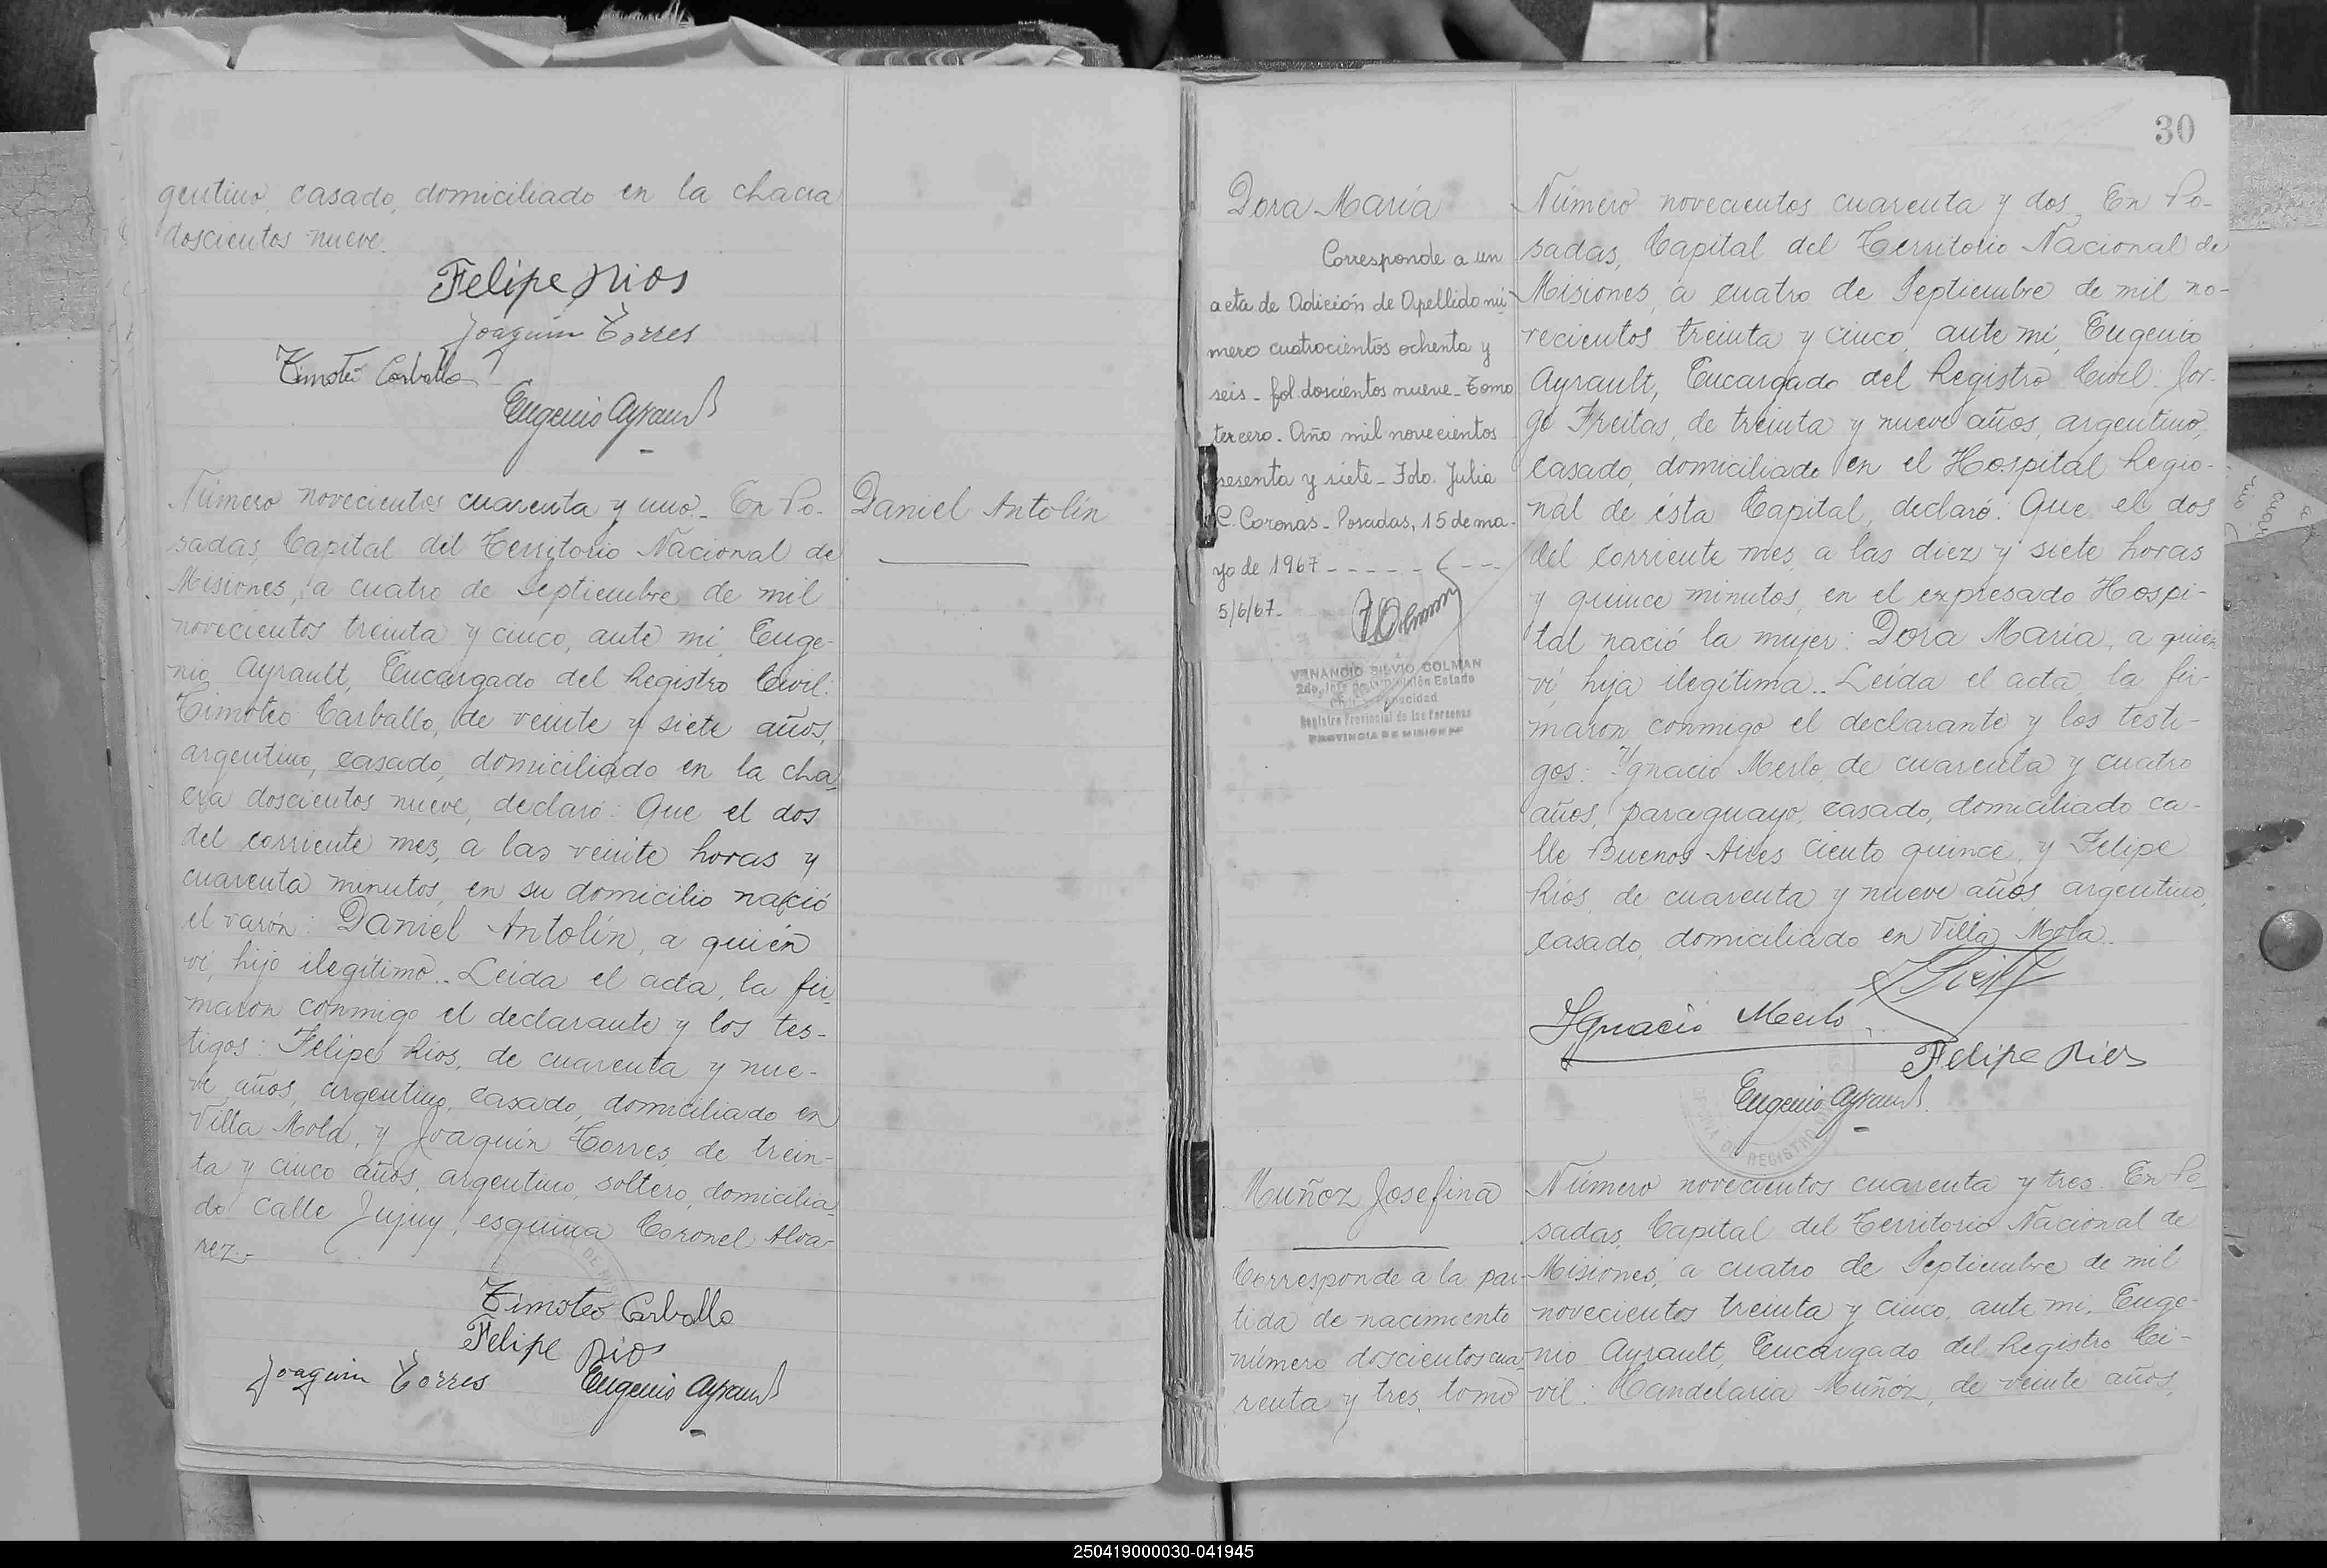 gentino, casado, domiciliado en la chacra
doscientos nueve.
Felipe Rios
Joaquin Torres
Timoteo Carballo
Eugenio Ayrault
Número novecientos cuarenta y uno_ En Po-
sadas, Capital del Territorio Nacional de
Misiones, a cuatro de Septiembre de mil
novecientos treinta y cinco, ante mi, Euge-
nio Ayrault, Encargado del Registro Civil:
Timoteo Carballo, de veinte y siete años,
argentino, casado, domiciliado en la cha
cra doscientos nueve, declaró: Que el dos
del corriente mes, a las veinte horas y
cuarenta minutos, en su domicilio nació
el varón: Daniel Antolín, a quién
ví, hijo ilegítimo.. Leída el acta, la fir
maron conmigo el declarante y los tes-
tigos: Felipe Ríos, de cuarenta y nue-
ve años, argentino, casado, domiciliado en
Villa Mola, y Joaquín Torres, de trein-
ta y cinco años, argentino, soltero, domicilia
do Calle Jujuy, esquina Coronel Alva-
rez.-
Timoteo Carballo
Felipe Rios
Joaquin Torres
Eugenio Ayrault
Daniel Antolín
30
Dora María
Corresponde a un
acta de Adición de Apellido nú-
mero cuatrocientos ochenta y
seis_ fol. doscientos nueve_ Tomo
tercero. Año mil novecientos
sesenta y siete_ Fdo. Julia
C. Coronas_ Posadas, 15 de ma-
yo de 1967 - - - - - - - -
5/6/67-
VENANCIO SILVIO COLMAN
Registro Provincial de las Personas
PROVINCIA DE MISIONES
Número novecientos cuarenta y dos_ En Po-
sadas, Capital del Territorio Nacional de
Misiones, a cuatro de Septiembre de mil no-
vecientos treinta y cinco, ante mi, Eugenio
Ayrault, Encargado del Registro Civil: Jor-
ge Freitas, de treinta y nueve años, argentino,
casado, domiciliado en el Hospital Regio-
nal de ésta Capital, declaró: Que el dos
del corriente mes, a las diez y siete horas
y quince minutos, en el expresado Hospi-
tal nació la mujer: Dora María, a quien
ví, hija ilegítima.. Leída el acta, la fir-
maron conmigo el declarante y los testi-
gos: Ygnacio Merlo, de cuarenta y cuatro
años, paraguayo, casado, domiciliado ca-
lle Buenos Aires ciento quince, y Felipe
Ríos, de cuarenta y nueve años, argentino,
casado, domiciliado en Villa Mola.
Ygnacio Merlo
Felipe Rios
Eugenio Ayrault
Muñoz Josefina
Corresponde a la par-
tida de nacimiento
número doscientos cua
renta y tres, tomo
Número novecientos cuarenta y tres. En Po_
sadas, Capital del Territorio Nacional de
Misiones, a cuatro de Septiembre de mil
novecientos treinta y cinco, ante mi, Euge-
nio Ayrault, Encargado del Registro Ci-
vil: Candelaria Muñóz, de veinte años,
250419000030-041945